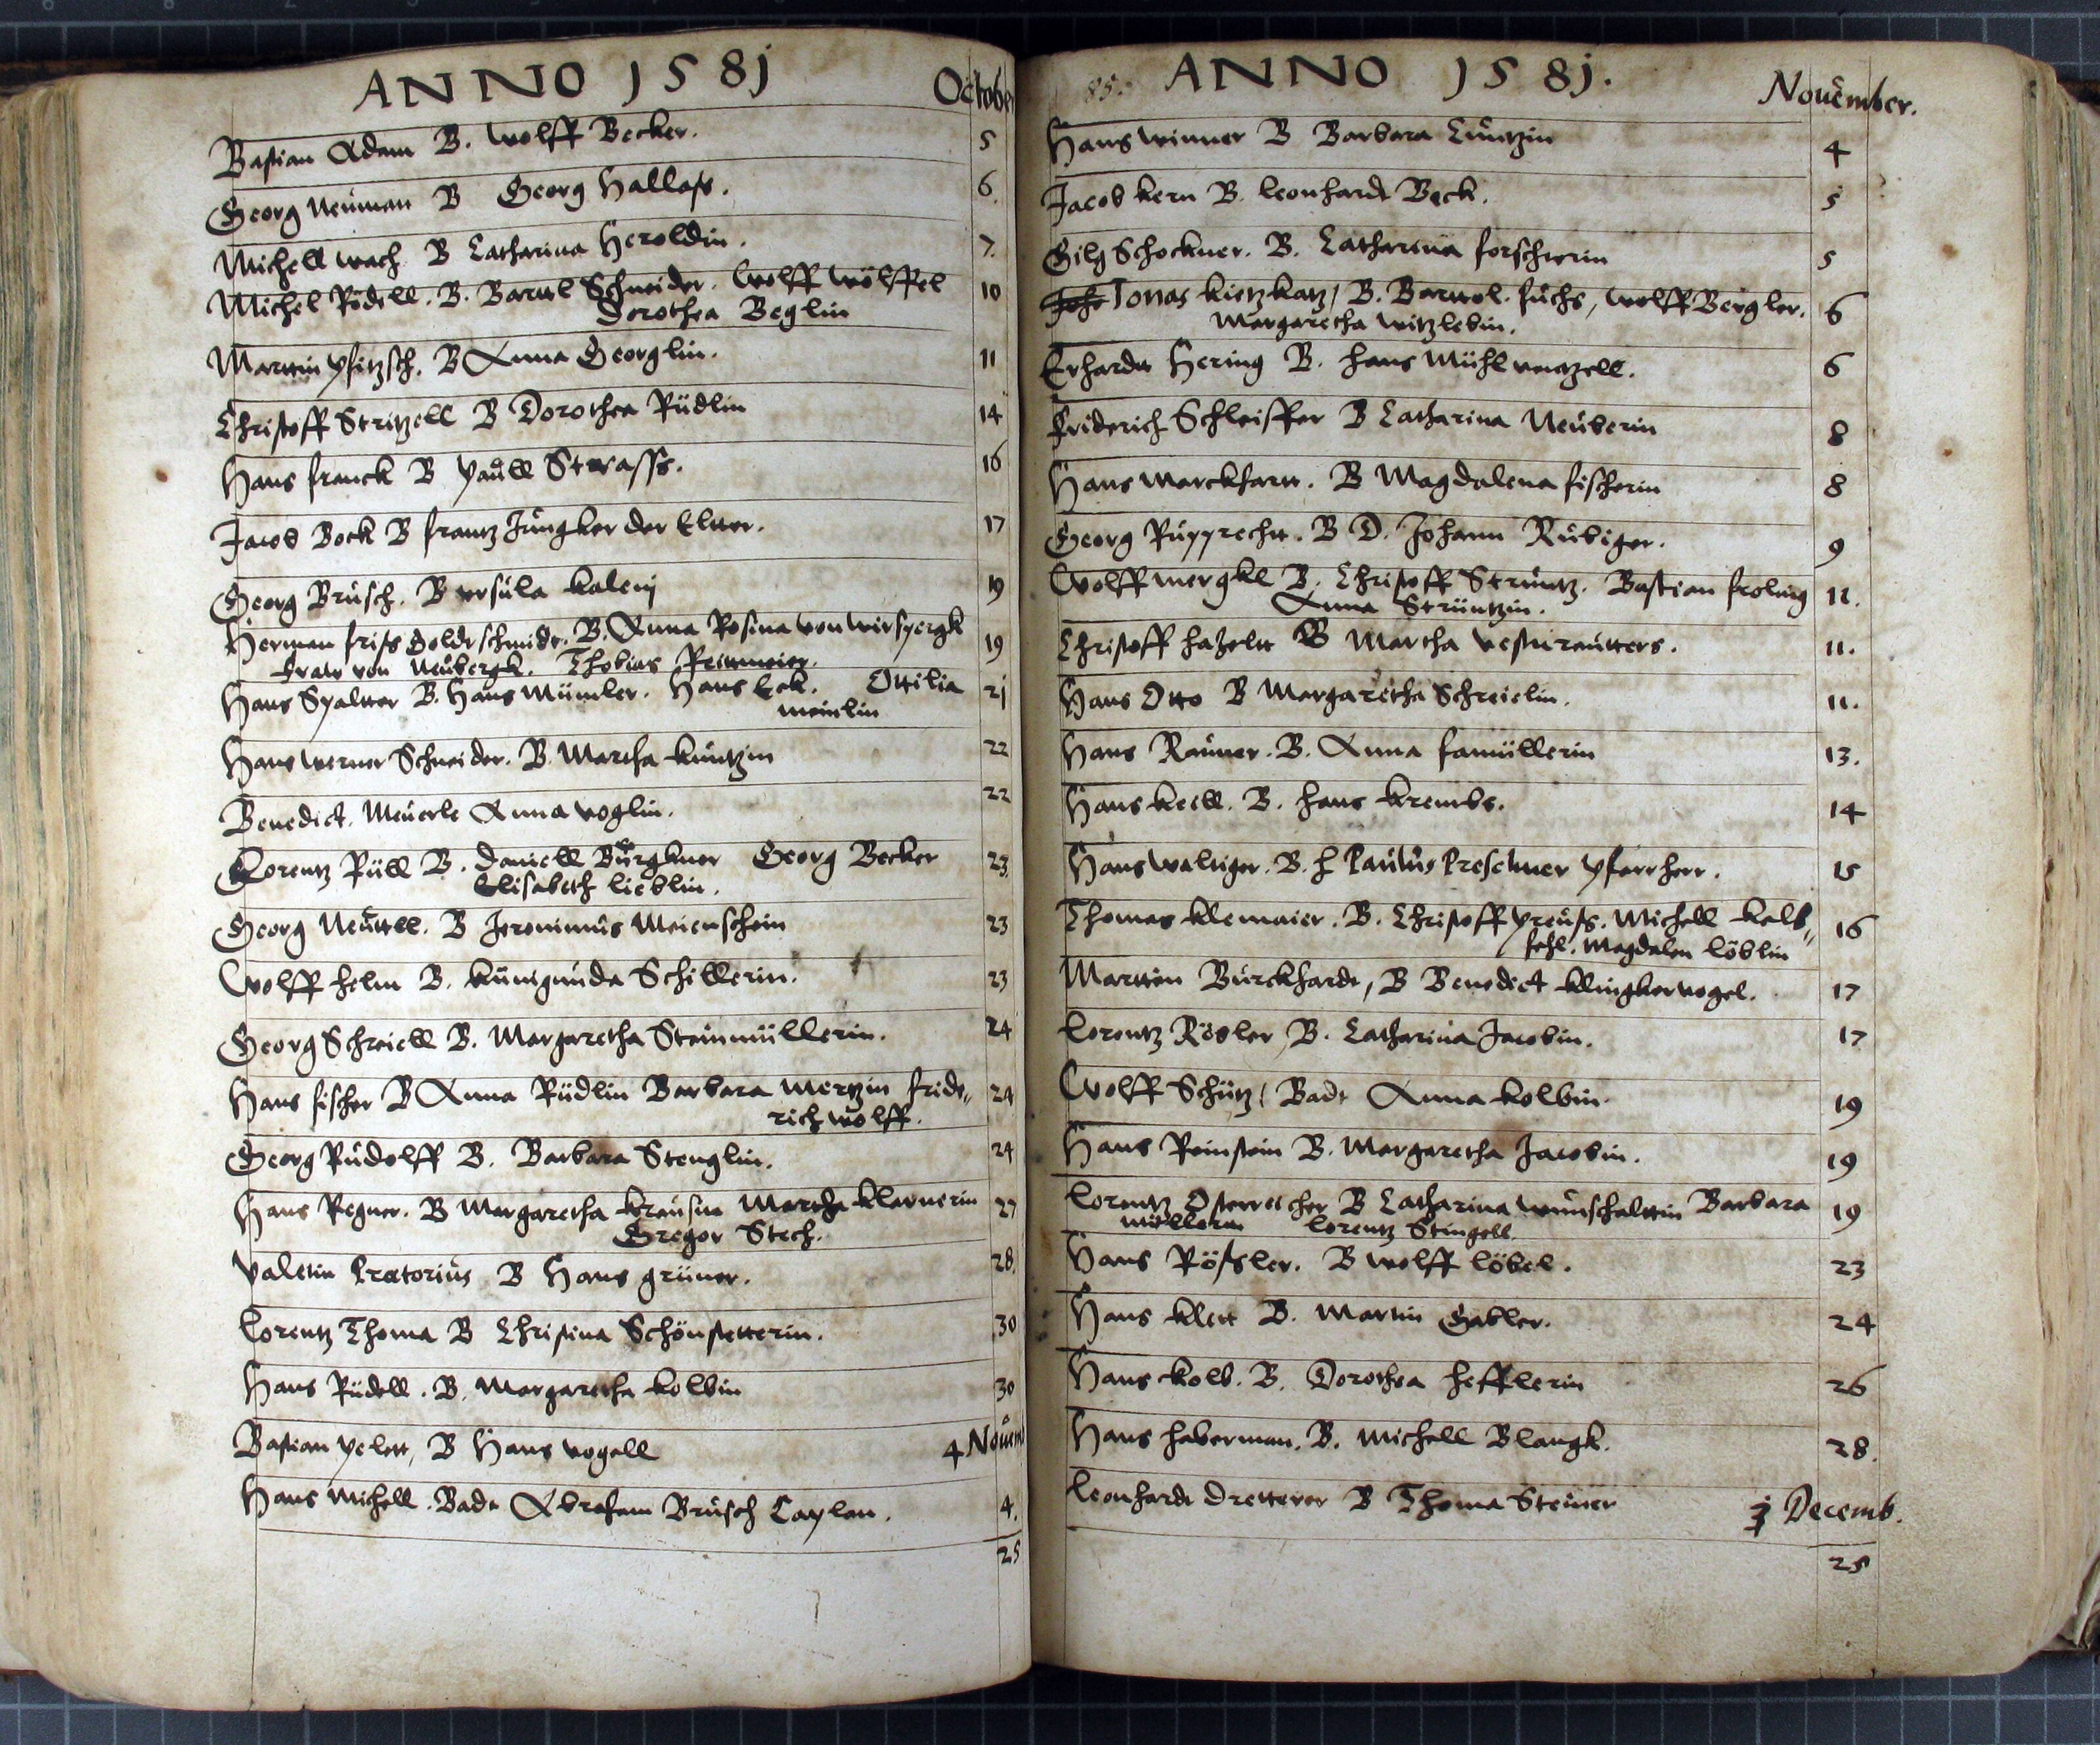 ANNO 1581
October
Bastian Adam B. Wolff Becker. 5
Georg Neuman B Georg Hallass. 6.
Michell Wach B Catharina Heroldin. 7.
Michel Rödell. B. Bartel Schneider. Wolff Wölffel 10
Dorothea Beglin
Marttin B Anna Georglin. 11
Christoff Stritzell B Dorothea Rüdlin 14
Hans Franck B Paull Strass. 16
Jacob Bock B Frantz Jungker der Eltter. 17
Georg Brüsch. B Ursula 19
Herman Friss Goldtschmidt. B. Anna Rosina von Wirspergk 19
Fraw von Neubergk. Thobias Reittmeier.
Hans Spaltter B. Hans Mümler. Hans Eck. Ottilia 21
Meinlin
Hans Werner Schneider. B. Martha Kuntzin 22
Benedict. Meuerle Anna Voglin. 22
Lorentz Rüll B. Daniell Burgkner Georg Becker 23.
Elisabeth Lieblin.
Georg Neuttel. B Jeronimus Meienschein 23
Wolff Helm B. Kunigunda Schillerin. 23
Georg Schreiell B. Margaretha Steinmüllerin. 24
Hans Fischer B Anna Rüdlin Barbara Mertzin Fride= 24
rich Wolff.
Georg Rudolff B. Barbara Stenglin. 24
Hans Regner. B Margaretha Martha Klarnerin 27
Gregor Stech.
Valetin Pretorius B Hans Grüner. 28.
Lorentz Thoma B Christina Schönstetterin. 30
Hans Rüdell. B. Margaretha Kolbin 30
Bastian Pelett, B Hans Vogell 4 Nouem
Hans Michell. Badt Abraham Brüsch Caplan. 4.
25
85.
ANNO 1581.
November.
Hans Winner B Barbara Cüntzin 4
Jacob Kern B. Leonhardt Beck. 5
Gilg Schockner. B. Catharina Forscherin 5
Joh Jonas Kietzkatz/ B. Barttol. Fuchs, Wolff Bergler. 6
Margaretha Witzlebin.
Erhardt Hering B. Hans Mühl 6
Friderich Schleiffer B Catharina Neuberin 8
Hans Marckhartt. B Magdalena Fischerin 8
Georg Rupprecht. B D. Johann Rübiger. 9
Wolff Mergkl B. Christoff Strüntz. Bastian Froling 11.
Anna Strüntzin.
Christoff Hazeltt B Martha 11.
Hans Otto B Margaretha Schreielin. 11.
Hans Rauner. B. Anna Hamüllerin 13.
Hans Keill. B. Hans Krembs. 14
Hans Waltiger. B. H Paulus Preschner Pfarrherr. 15
Thomas Klemaier. B. Christoff Preuss. Michell Kalb= 16
fehl. Magdalen Löblin
Marttin Burckhardt, B Benedict Klingkervogel. 17
Lorentz Rösler, B. Catharina Jacobin. 17
Wolff Schütz/ Badt Anna Kolbin. 19
Hans Reinstein B. Margaretha Jacobin. 19
Lorentz Österreicher B Catharina Wunschalttin Barbara 19
Müllerin Lorentz Stingell.
Hans Rössler. B Wolff Löbel. 23
Hans Klett B. Martin Gabler. 24
Hans Kolb. B. Dorothea Hefflerin 26
Hans Haberman. B. Michell Blangk. 28.
Leonhardt Dretterer B Thoma Steiner 1 Decemb.
25